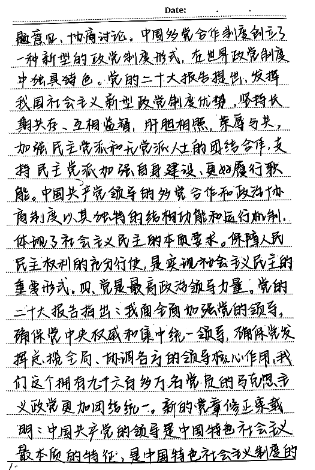 Date:
题意见、协商讨论。中国多党合作制度创立了
一种新型的政党制度形式，在世界政党制度
中独具特色。党的二十大报告提出，发挥
我国社会主义新型政党制度优势，坚持长
期共存、互相监督、肝胆相照、荣辱与共，
加强民主党派和无党派人士的团结合作，支
持民主党派加强自身建设、更好履行职
能。中国共产党领导的多党合作和政治协
商制度以其独特的结构功能和运行机制，
体现了社会主义民主的本质要求。保障人民
民主权利的充分行使，是实现社会主义民主的
重要形式。四、党是最高政治领导力量。党的
二十大报告指出：我国全面加强党的领导，
确保党中央权威和集中统一领导，确保党发
挥总揽全局、协调各方的领导核心作用，我
们这个拥有九千六百多万名党员的马克思主
义政党更加团结统一。新的党章修正案载
明：中国共产党的领导是中国特色社会主义
最本质的特征，是中国特色社会主义制度的